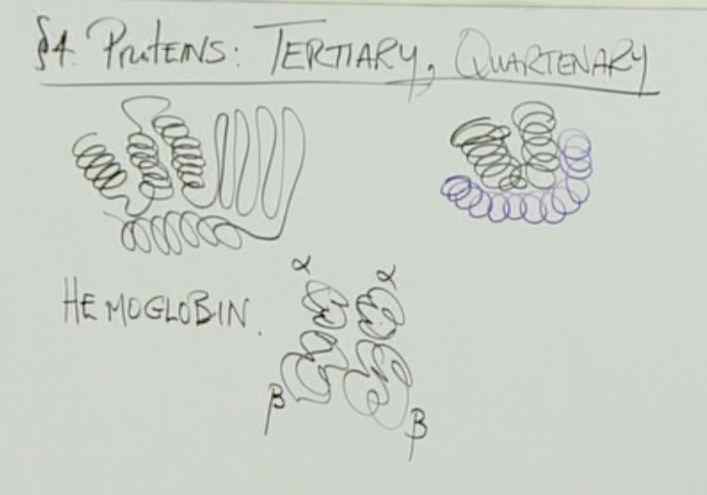 §4. Proteins: Tertiary, Quartenary
Hemoglobin.
α α
β β